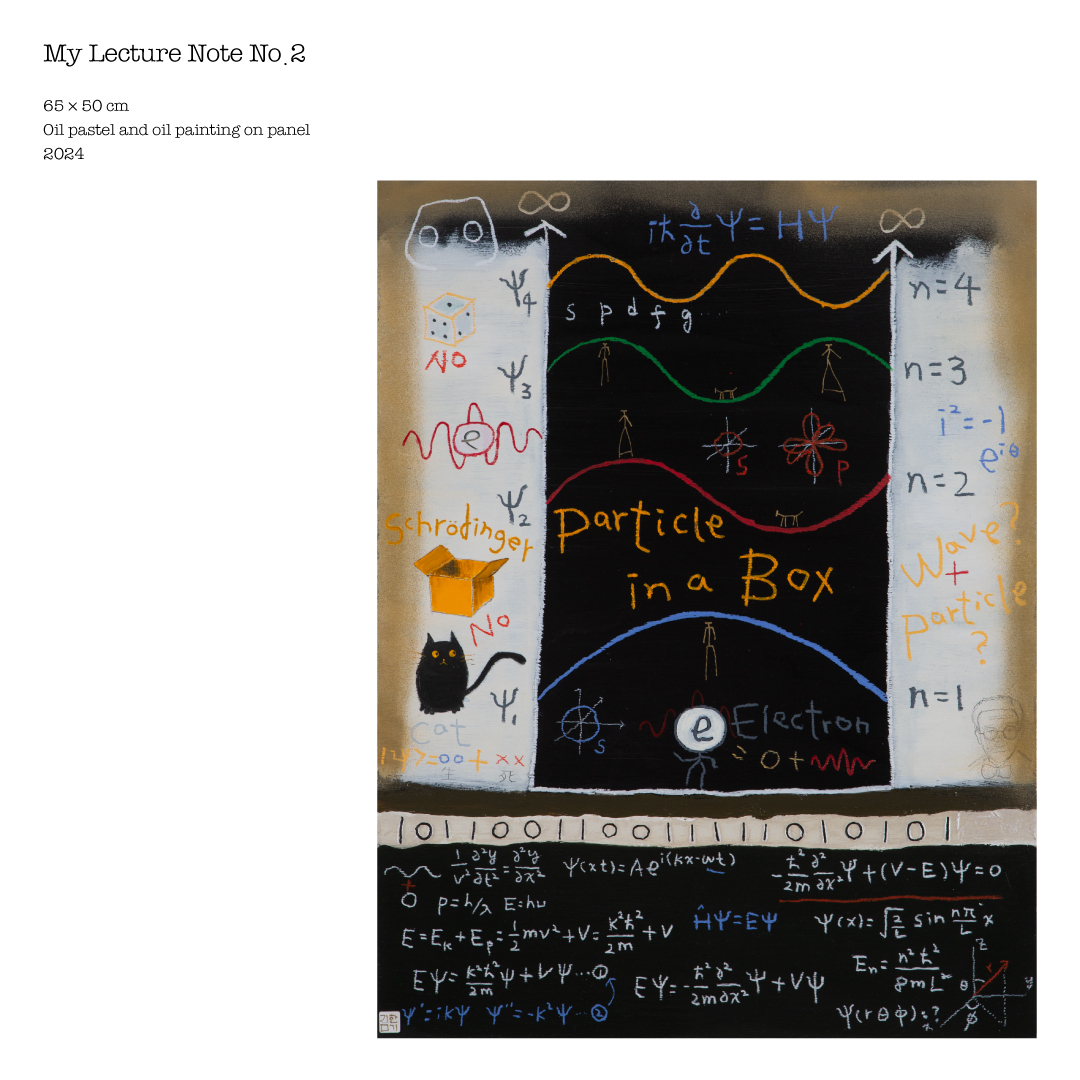 My Lecture Note No.2
65 × 50 cm
Oil pastel and oil painting on panel
2024
∞
∞
iħ ∂/∂t Ψ = HΨ
Ψ4
n=4
s p d f g ....
NO
Ψ3
n=3
i²=-1
e^iθ
e
s
p
Ψ2
n=2
Schrödinger
Particle
in a Box
Wave?
+
particle
?
NO
Ψ1
n=1
cat
s
e
Electron
= O +
|Ψ>=oo+xx
生 死
|O||OO||OO||||||O|O|O|
1/v² ∂²y/∂t² = ∂²y/∂x²
Ψ(xt)=Ae^i(kx-wt)
-ħ²/2m ∂²/∂x² Ψ+(V-E)Ψ=0
+
O
p=h/λ E=hυ
E=Ek+Ep=1/2 mv²+V=k²ħ²/2m+V
ĤΨ=EΨ
Ψ(x)=√2/L sin nπ/L x
EΨ=k²ħ²/2m Ψ+VΨ...①
EΨ=-ħ²∂²/2m∂x² Ψ+VΨ
En=n²ħ²/8mL²
Ψ'=ikΨ Ψ''=-k²Ψ...②
Ψ(rθφ)=?
z
r
θ
y
x
φ